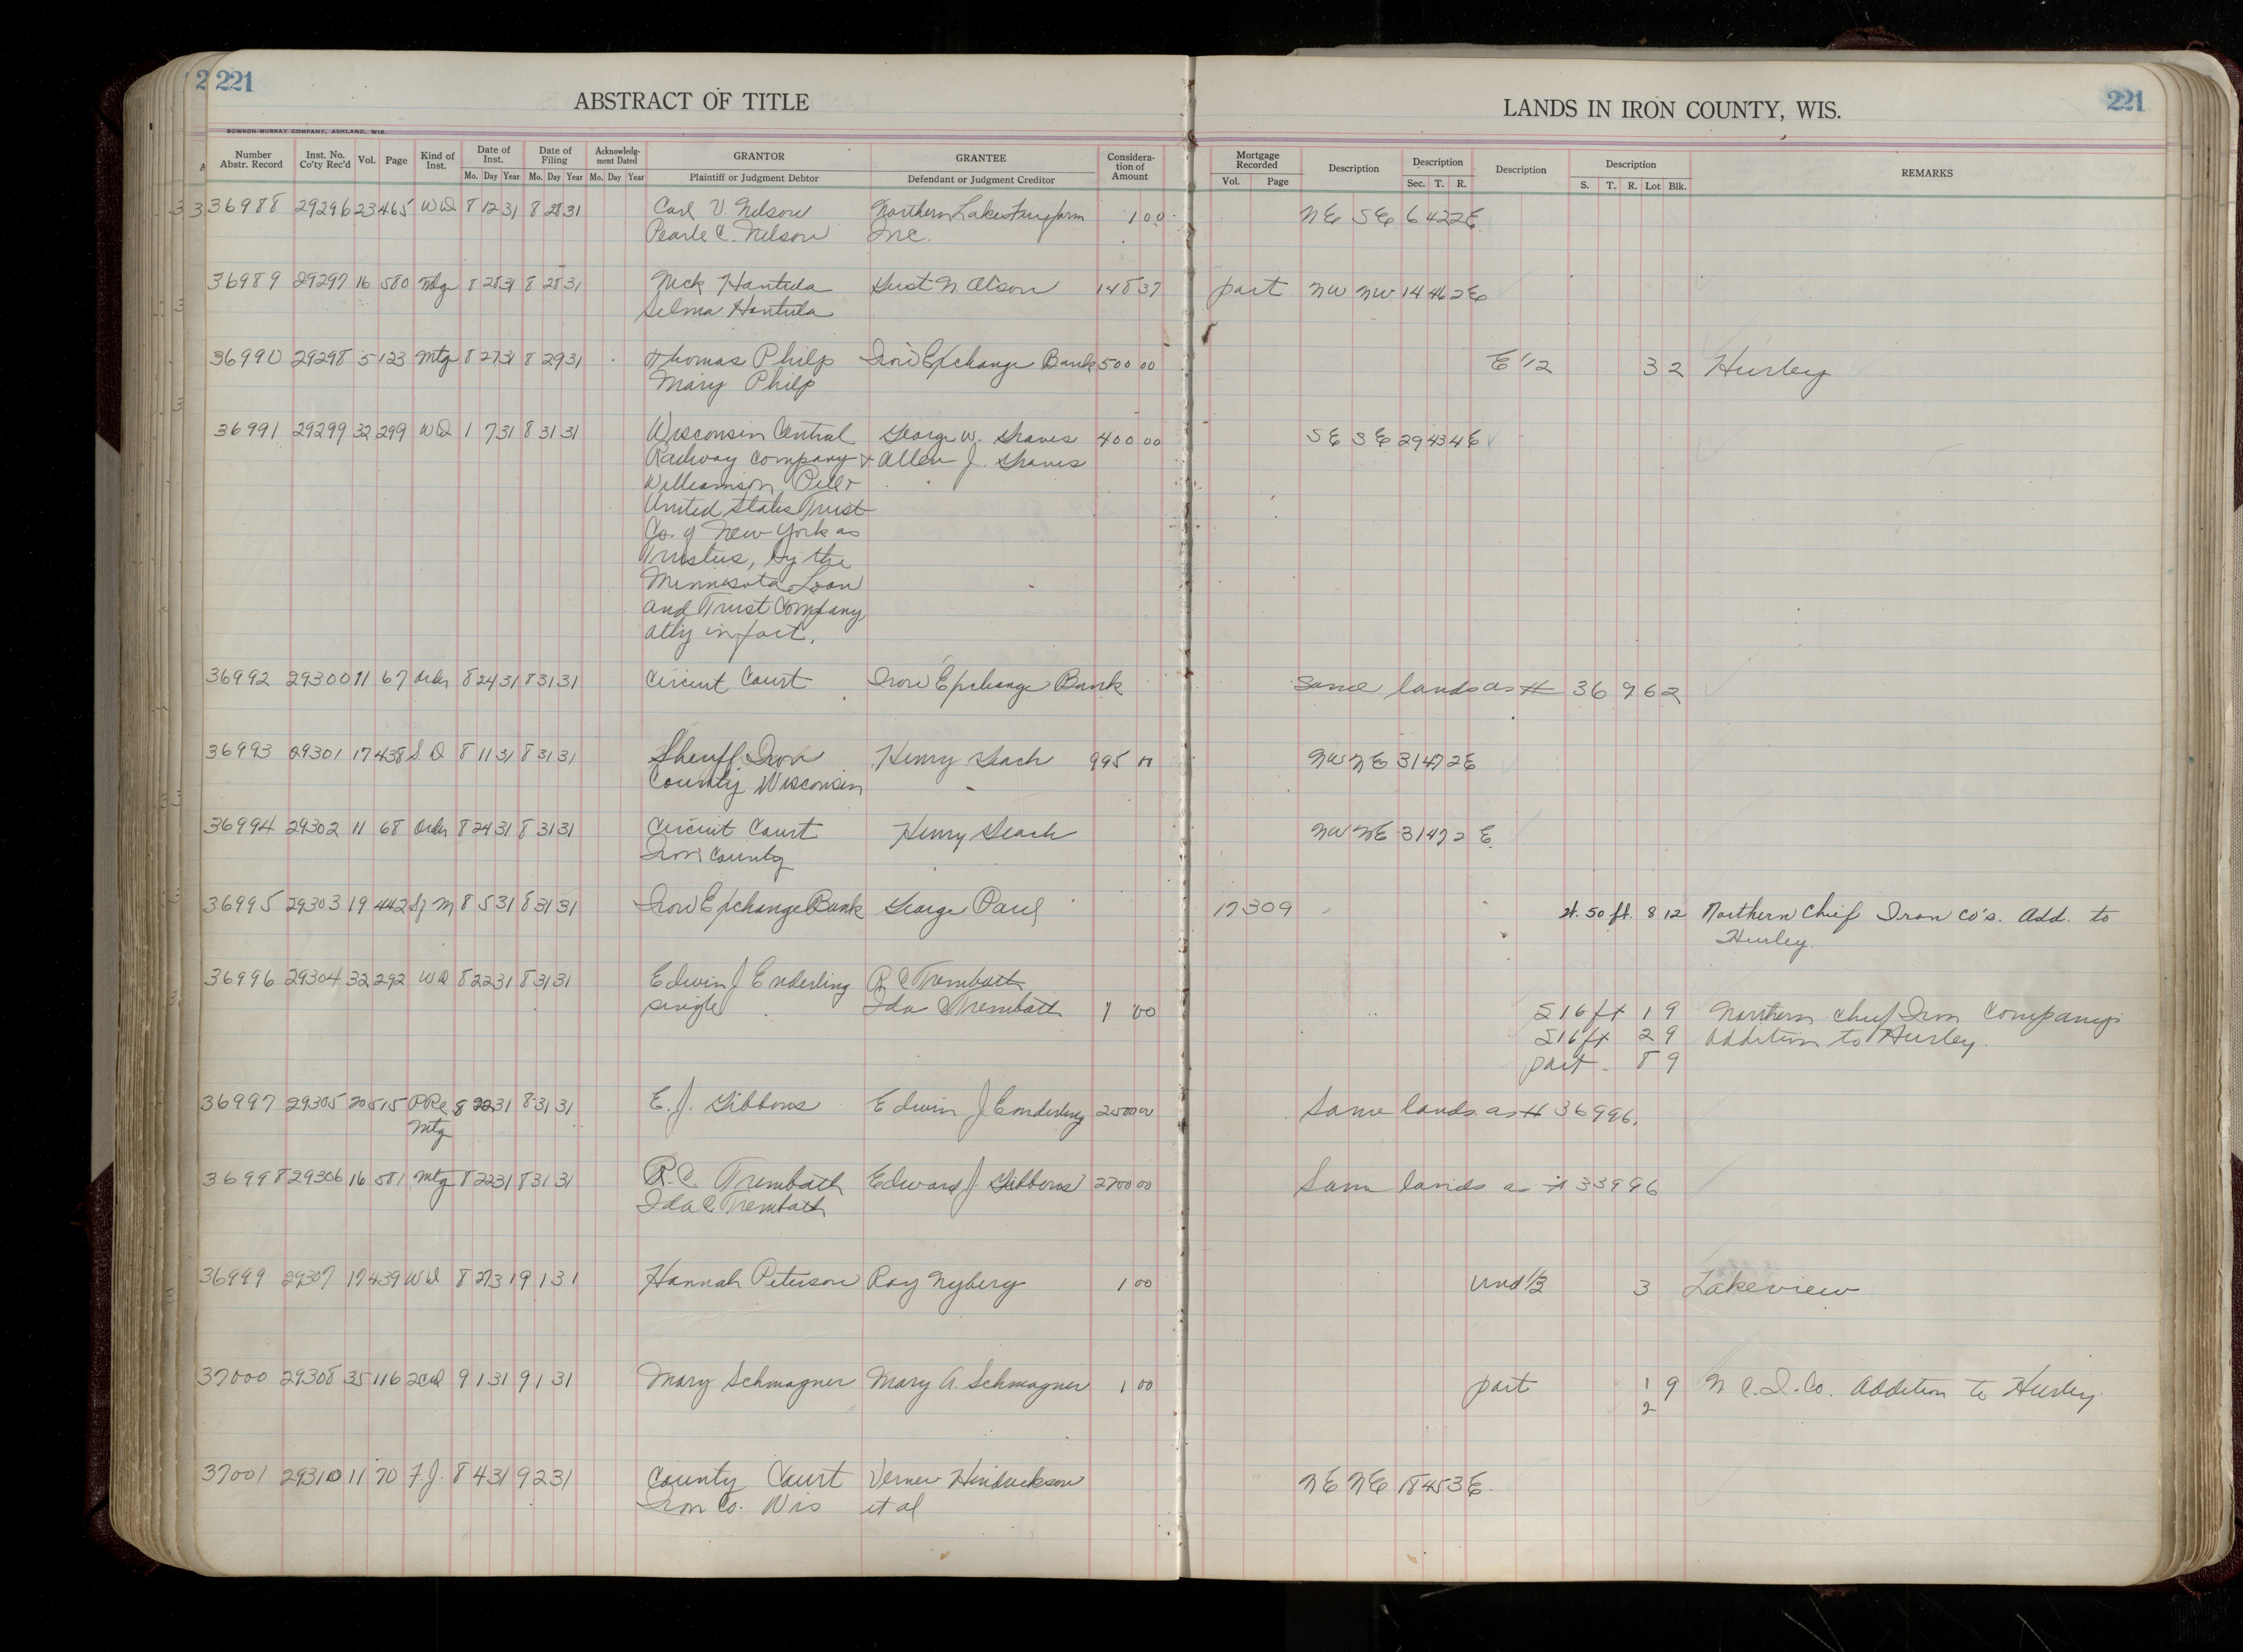 221
ABSTRACT OF TITLE
LANDS IN IRON COUNTY, WIS.
221
BOWRON-MURRAY COMPANY, ASHLAND, WIS.
Number Abstr. Record Inst. No. Co'ty Rec'd Vol. Page Kind of Inst. Date of Inst. Mo. Day Year Date of Filing Mo. Day Year Acknowledg-ment Dated Mo. Day Year GRANTOR Plaintiff or Judgment Debtor GRANTEE Defendant or Judgment Creditor Considera-tion of Amount Mortgage Recorded Vol. Page Description Description Sec. T. R. Description Description S. T. R. Lot Blk. REMARKS
36988 29296 23 465 WD 8 12 31 8 28 31 Carl V. Nelson Northern Lakes 1 00 NE SE 6 42 2E
Pearle C. Nelson Inc.
36989 29297 16 580 Mtg 8 28 31 8 28 31 Nick Hantula Gust N Olson 148 37 part NW NW 14 46 2E
Selma Hantula
36990 29298 5 123 Mtg 8 27 31 8 29 31 Thomas Philp Iron Exchange Bank 500 00 E 1/2 3 2 Hurley
Mary Philp
36991 29299 32 299 WD 1 7 31 8 31 31 Wisconsin Central George W. Graves 400 00 SE SE 29 43 4E
Railway Company + Allen J. Graves
Williamson Pell +
United States Trust
Co. of New York as
Trustees, by the
Minnesota Loan
and Trust Company
atty in fact.
36992 29300 11 67 Order 8 24 31 8 31 31 Circuit Court Iron Exchange Bank Same lands as # 36962
36993 29301 17 438 S.D 8 11 31 8 31 31 Sheriff Iron Henry Meach 995 NW NE 31 47 2E
County Wisconsin
36994 29302 11 68 Order 8 24 31 8 31 31 Circuit Court Henry NW NE 31 47 2 E
Iron County
36995 29303 19 442 Sj M 8 5 31 8 31 31 Iron Exchange Bank George Paul 17 309 50 ft. 8 12 Northern Chief Iron Co's. Add. to
Hurley.
36996 29304 32 292 WD 8 22 31 8 31 31 Edwin J Enderling R C Trembath
single Ida C Trembath 1 00 S 16 ft 1 9 Northern Chief Iron Companys
S 16 ft 2 9 Addition to Hurley.
part 8 9
36997 29305 20 515 P Re 8 22 31 8 31 31 E. J. Gibbons Edwin J Enderling 2500 00 Same lands as # 36996.
Mtg
36998 29306 16 581 Mtg 8 22 31 8 31 31 R.C. Trembath Edward J Gibbons 2700 00 Same lands as # 33996
Ida C Trembath
36999 29307 17 439 WD 8 27 31 9 1 31 Hannah Peterson Roy Nyberg 1 00 Und 1/3 3 Lakeview
37000 29308 35 116 2CD 9 1 31 9 1 31 Mary Schmagner Mary A. Schmagner 1 00 part 1 9 N C. I. Co. Addition to Hurley.
2
37001 29310 11 70 F.J. 8 4 31 9 2 31 County Court Verner NE NE 18 45 3E.
Iron Co. Wis et al